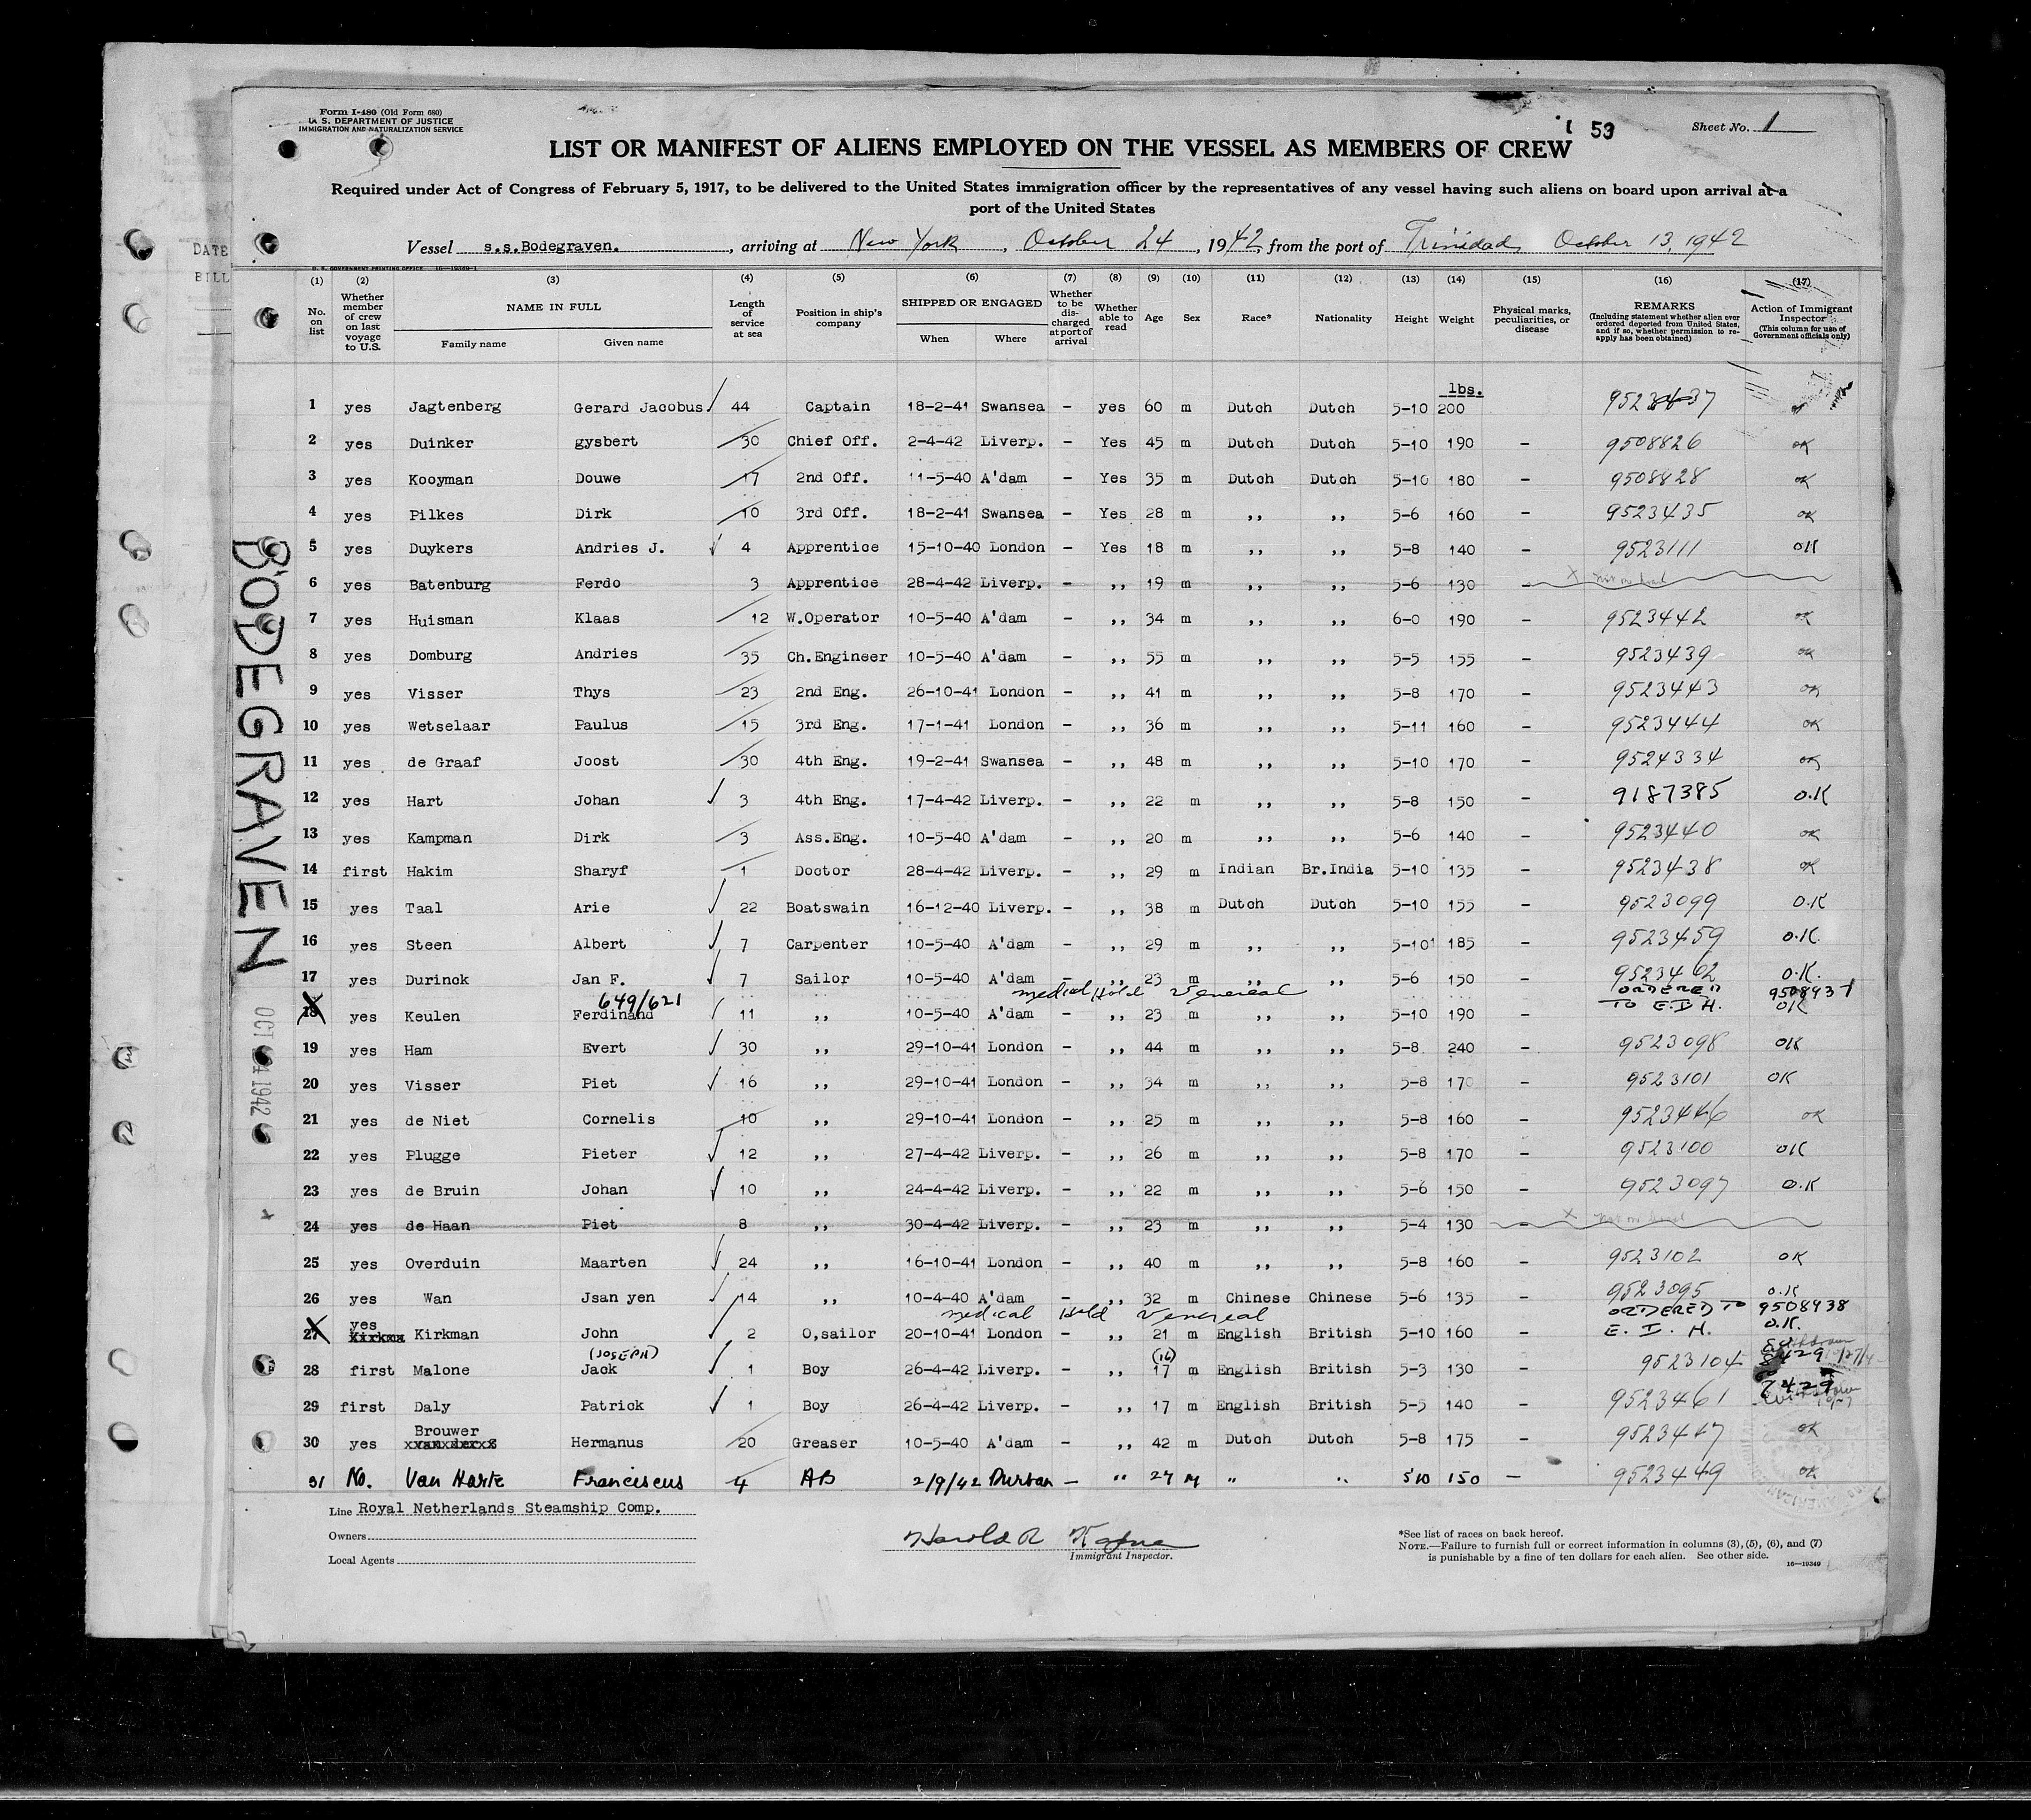 Form I-480 (Old Form 680)
U. S. DEPARTMENT OF JUSTICE
IMMIGRATION AND NATURALIZATION SERVICE
53
Sheet No. 1
LIST OR MANIFEST OF ALIENS EMPLOYED ON THE VESSEL AS MEMBERS OF CREW
Required under Act of Congress of February 5, 1917, to be delivered to the United States immigration officer by the representatives of any vessel having such aliens on board upon arrival at a
port of the United States
Vessel s.s.Bodegraven. , arriving at New York , October 24 , 1942, from the port of Trinidad, October 13, 1942
DATE
BILL
U. S. GOVERNMENT PRINTING OFFICE 16—19349-1
(1) No. on list
(2) Whether member of crew on last voyage to U.S.
(3) NAME IN FULL Family name Given name
(4) Length of service at sea
(5) Position in ship's company
(6) SHIPPED OR ENGAGED When Where
(7) Whether to be dis-charged at port of arrival
(8) Whether able to read
(9) Age
(10) Sex
(11) Race*
(12) Nationality
(13) Height
(14) Weight
(15) Physical marks, peculiarities, or disease
(16) REMARKS (Including statement whether alien ever ordered deported from United States, and if so, whether permission to re-apply has been obtained)
(17) Action of Immigrant Inspector (This column for use of Government officials only)
lbs.
1 yes Jagtenberg Gerard Jacobus 44 Captain 18-2-41 Swansea - yes 60 m Dutch Dutch 5-10 200 9523437
2 yes Duinker gysbert 30 Chief Off. 2-4-42 Liverp. - Yes 45 m Dutch Dutch 5-10 190 - 9508826 OK
3 yes Kooyman Douwe 17 2nd Off. 11-5-40 A'dam - Yes 35 m Dutch Dutch 5-10 180 - 9508828 OK
4 yes Pilkes Dirk 10 3rd Off. 18-2-41 Swansea - Yes 28 m ,, ,, 5-6 160 - 9523435 OK
5 yes Duykers Andries J. 4 Apprentice 15-10-40 London - Yes 18 m ,, ,, 5-8 140 - 9523111 OK
6 yes Batenburg Ferdo 3 Apprentice 28-4-42 Liverp. - ,, 19 m ,, ,, 5-6 130 - X not on board
7 yes Huisman Klaas 12 W.Operator 10-5-40 A'dam - ,, 34 m ,, ,, 6-0 190 - 9523442 OK
8 yes Domburg Andries 35 Ch.Engineer 10-5-40 A'dam - ,, 55 m ,, ,, 5-5 155 - 9523439 OK
9 yes Visser Thys 23 2nd Eng. 26-10-41 London - ,, 41 m ,, ,, 5-8 170 - 9523443 OK
10 yes Wetselaar Paulus 15 3rd Eng. 17-1-41 London - ,, 36 m ,, ,, 5-11 160 - 9523444 OK
11 yes de Graaf Joost 30 4th Eng. 19-2-41 Swansea - ,, 48 m ,, ,, 5-10 170 - 9524334 OK
12 yes Hart Johan 3 4th Eng. 17-4-42 Liverp. - ,, 22 m ,, ,, 5-8 150 - 9187385 O.K
13 yes Kampman Dirk 3 Ass.Eng. 10-5-40 A'dam - ,, 20 m ,, ,, 5-6 140 - 9523440 OK
14 first Hakim Sharyf 1 Doctor 28-4-42 Liverp. - ,, 29 m Indian Br.India 5-10 135 - 9523438 OK
15 yes Taal Arie 22 Boatswain 16-12-40 Liverp. - ,, 38 m Dutch Dutch 5-10 155 - 9523099 O.K
16 yes Steen Albert 7 Carpenter 10-5-40 A'dam - ,, 29 m ,, ,, 5-10 185 - 9523459 O.K.
17 yes Durinck Jan F. 7 Sailor 10-5-40 A'dam - ,, 23 m ,, ,, 5-6 150 - 9523462 O.K.
649/621 medical Hold Venereal ORDERED 9508937
18 yes Keulen Ferdinand 11 ,, 10-5-40 A'dam - ,, 23 m ,, ,, 5-10 190 - TO E.I.H. OK
19 yes Ham Evert 30 ,, 29-10-41 London - ,, 44 m ,, ,, 5-8 240 - 9523098 OK
20 yes Visser Piet 16 ,, 29-10-41 London - ,, 34 m ,, ,, 5-8 170 - 9523101 OK
21 yes de Niet Cornelis 10 ,, 29-10-41 London - ,, 25 m ,, ,, 5-8 160 - 9523446 OK
22 yes Plugge Pieter 12 ,, 27-4-42 Liverp. - ,, 26 m ,, ,, 5-8 170 - 9523100 OK
23 yes de Bruin Johan 10 ,, 24-4-42 Liverp. - ,, 22 m ,, ,, 5-6 150 - 9523097 O.K
24 yes de Haan Piet 8 ,, 30-4-42 Liverp. - ,, 23 m ,, ,, 5-4 130 - X not on board
25 yes Overduin Maarten 24 ,, 16-10-41 London - ,, 40 m ,, ,, 5-8 160 - 9523102 OK
26 yes Wan Jsan yen 14 ,, 10-4-40 A'dam - ,, 32 m Chinese Chinese 5-6 135 - 9523095 O.K
medical Hold Venereal ORDERED TO 9508938
27 yes Kirkman John 2 O,sailor 20-10-41 London - ,, 21 m English British 5-10 160 - E. I. H. O.K.
(JOSEPH) (16)
28 first Malone Jack 1 Boy 26-4-42 Liverp. - ,, 17 m English British 5-3 130 - 9523104 8429
29 first Daly Patrick 1 Boy 26-4-42 Liverp. - ,, 17 m English British 5-5 140 - 9523461
Brouwer
30 yes Hermanus 20 Greaser 10-5-40 A'dam - ,, 42 m Dutch Dutch 5-8 175 - 9523447 OK
31 No. Van Harte Franciscus 4 AB 2/9/42 Durban - " 27 M " " 5'10 150 - 9523449 OK
BODEGRAVEN
OCT 24 1942
Line Royal Netherlands Steamship Comp.
Owners
Local Agents
Harold R
Immigrant Inspector.
*See list of races on back hereof.
NOTE.—Failure to furnish full or correct information in columns (3), (5), (6), and (7)
is punishable by a fine of ten dollars for each alien. See other side.
16—19349